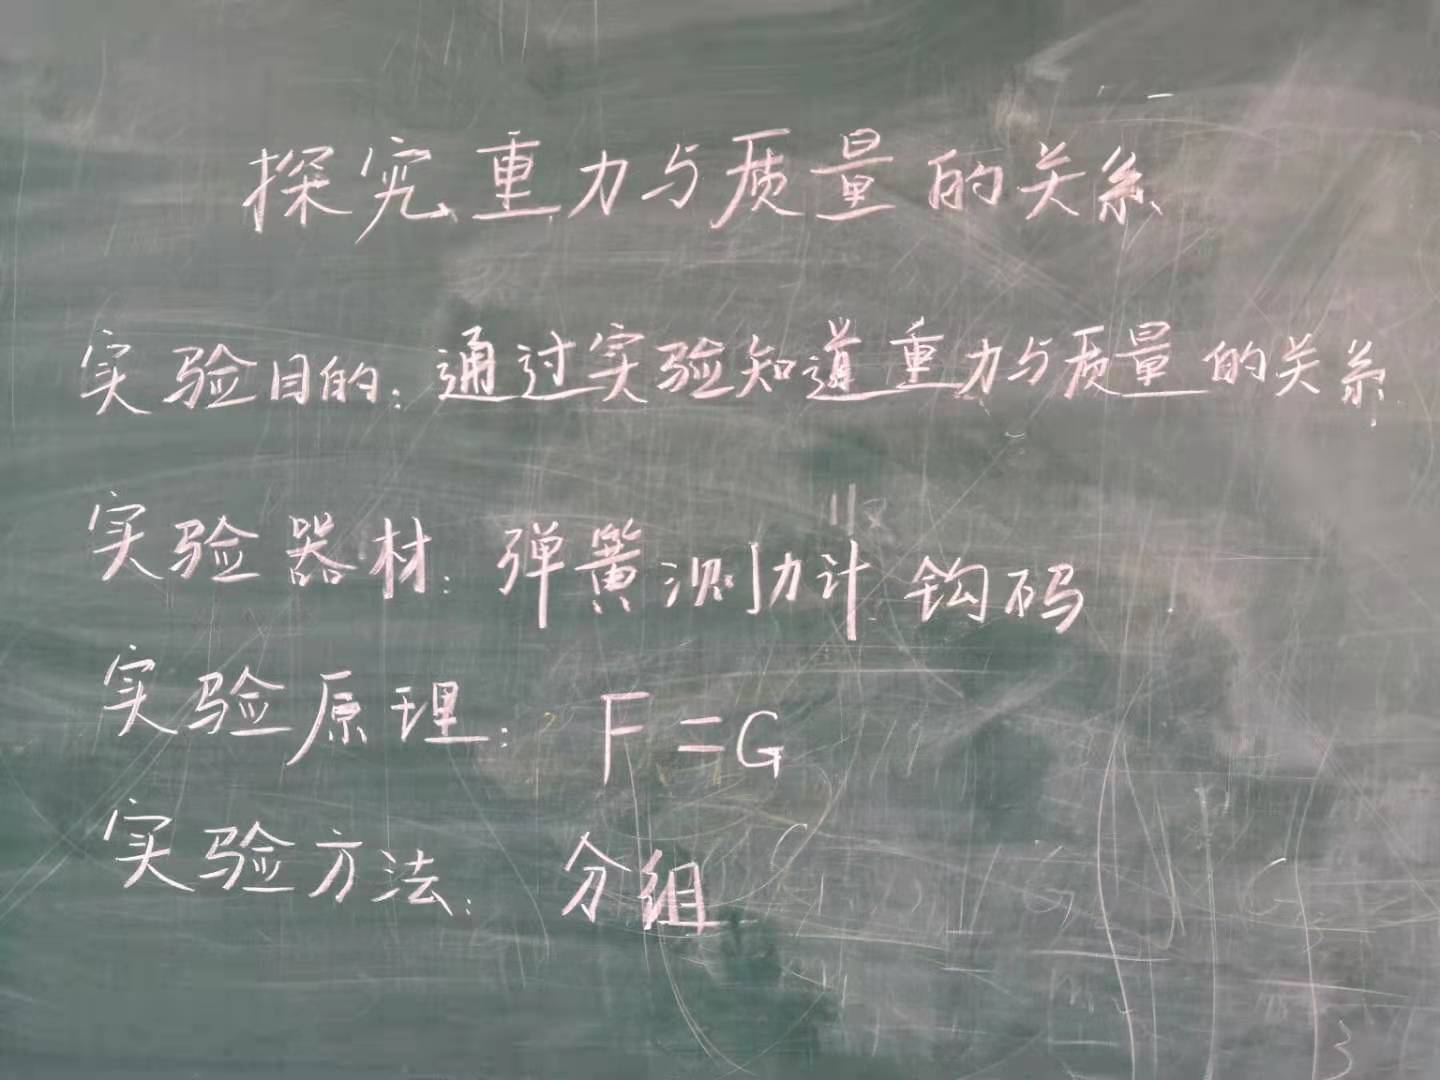 探究重力与质量的关系
实验目的：通过实验知道重力与质量的关系
实验器材：弹簧测力计 钩码
实验原理： F=G
实验方法： 分组